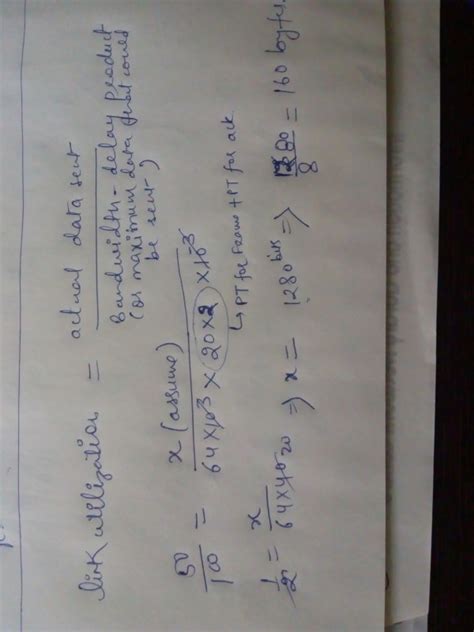 link utilization = actual data sent
Bandwidth-delay product
(or maximum data
be sent)
50/100 = x (assume) / 64×10³ × 20×2 × 10⁻³
↳ PT for Frame + PT for ack
1/2 = x / 64×40 ⇒ x = 1280 bits ⇒ 1280/8 = 160 bytes